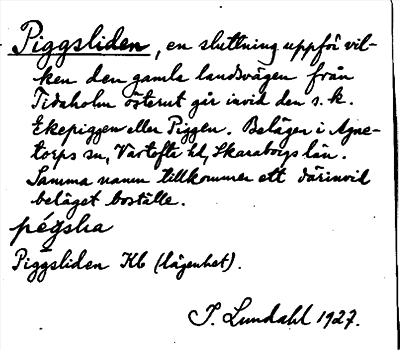 Piggsliden, en sluttning uppför vil-
ken den gamla landsvägen från
Tidaholm österut går invid den s. k.
Ekepiggen eller Piggen. Beläger i Agne-
torps sn, Vartofta hd, Skaraborgs län.
Samma namn tillkommer ett därinvid
beläget boställe.
Piggsliden Kb (lägenhet).
I. Lundahl 1927.